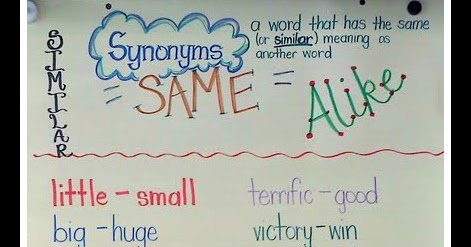 SIMILAR
Synonyms
a word that has the same
(or similar) meaning as
another word
= SAME = Alike
little - small
terrific - good
big - huge
victory - win